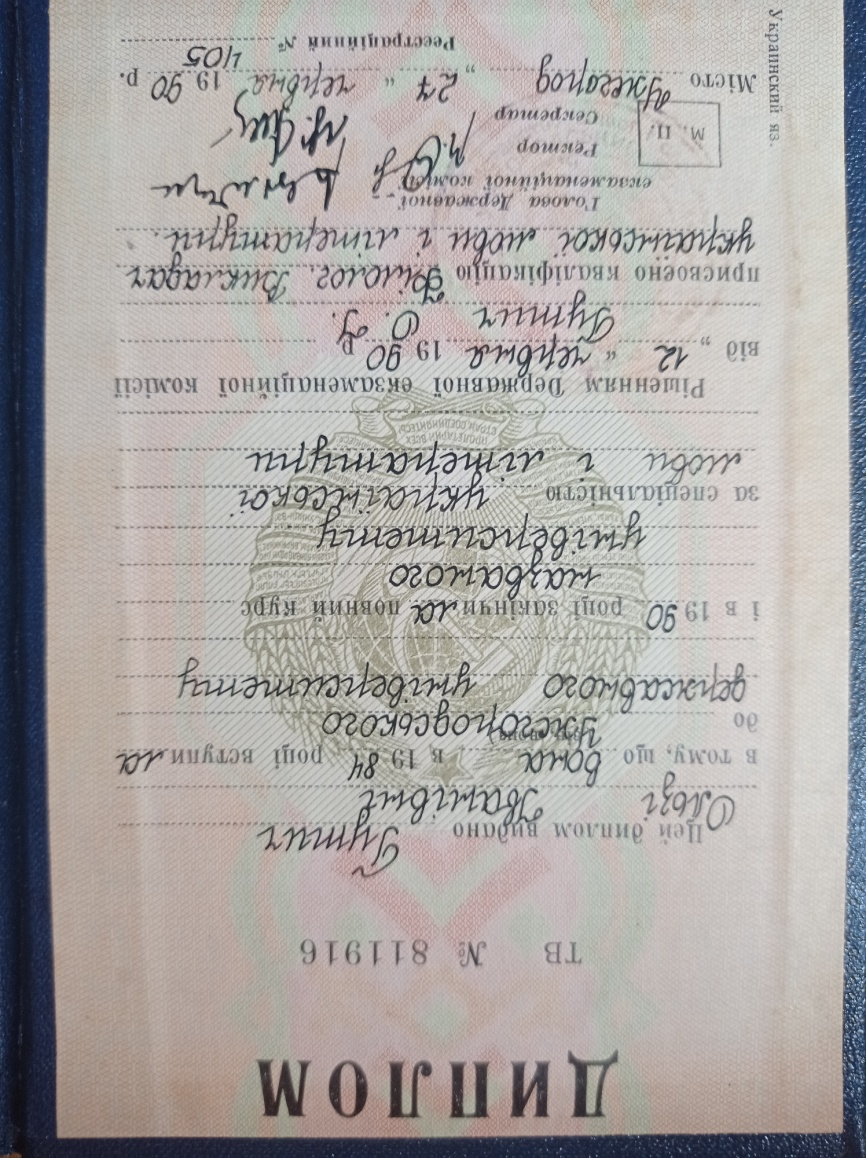 ДИПЛОМ
ТВ № 811916
Цей диплом видано Гутич
Ользі Іванівні
в тому, що вона в 19 84 році вступила
до Ужгородського
державного університету
і в 19 90 році закінчила повний курс
названого
університету
за спеціальністю української
мови і літератури
Рішенням Державної екзаменаційної комісії
від „ 12 “ червня 19 90 р.
Гутич О. І.
присвоєно кваліфікацію Філолог. Викладач
української мови і літератури.
Голова Державної
екзаменаційної комісії
Ректор
М. П.
Секретар
Місто Ужгород „ 27 “ червня 19 90 р.
Реєстраційний № 405
Украинский яз.